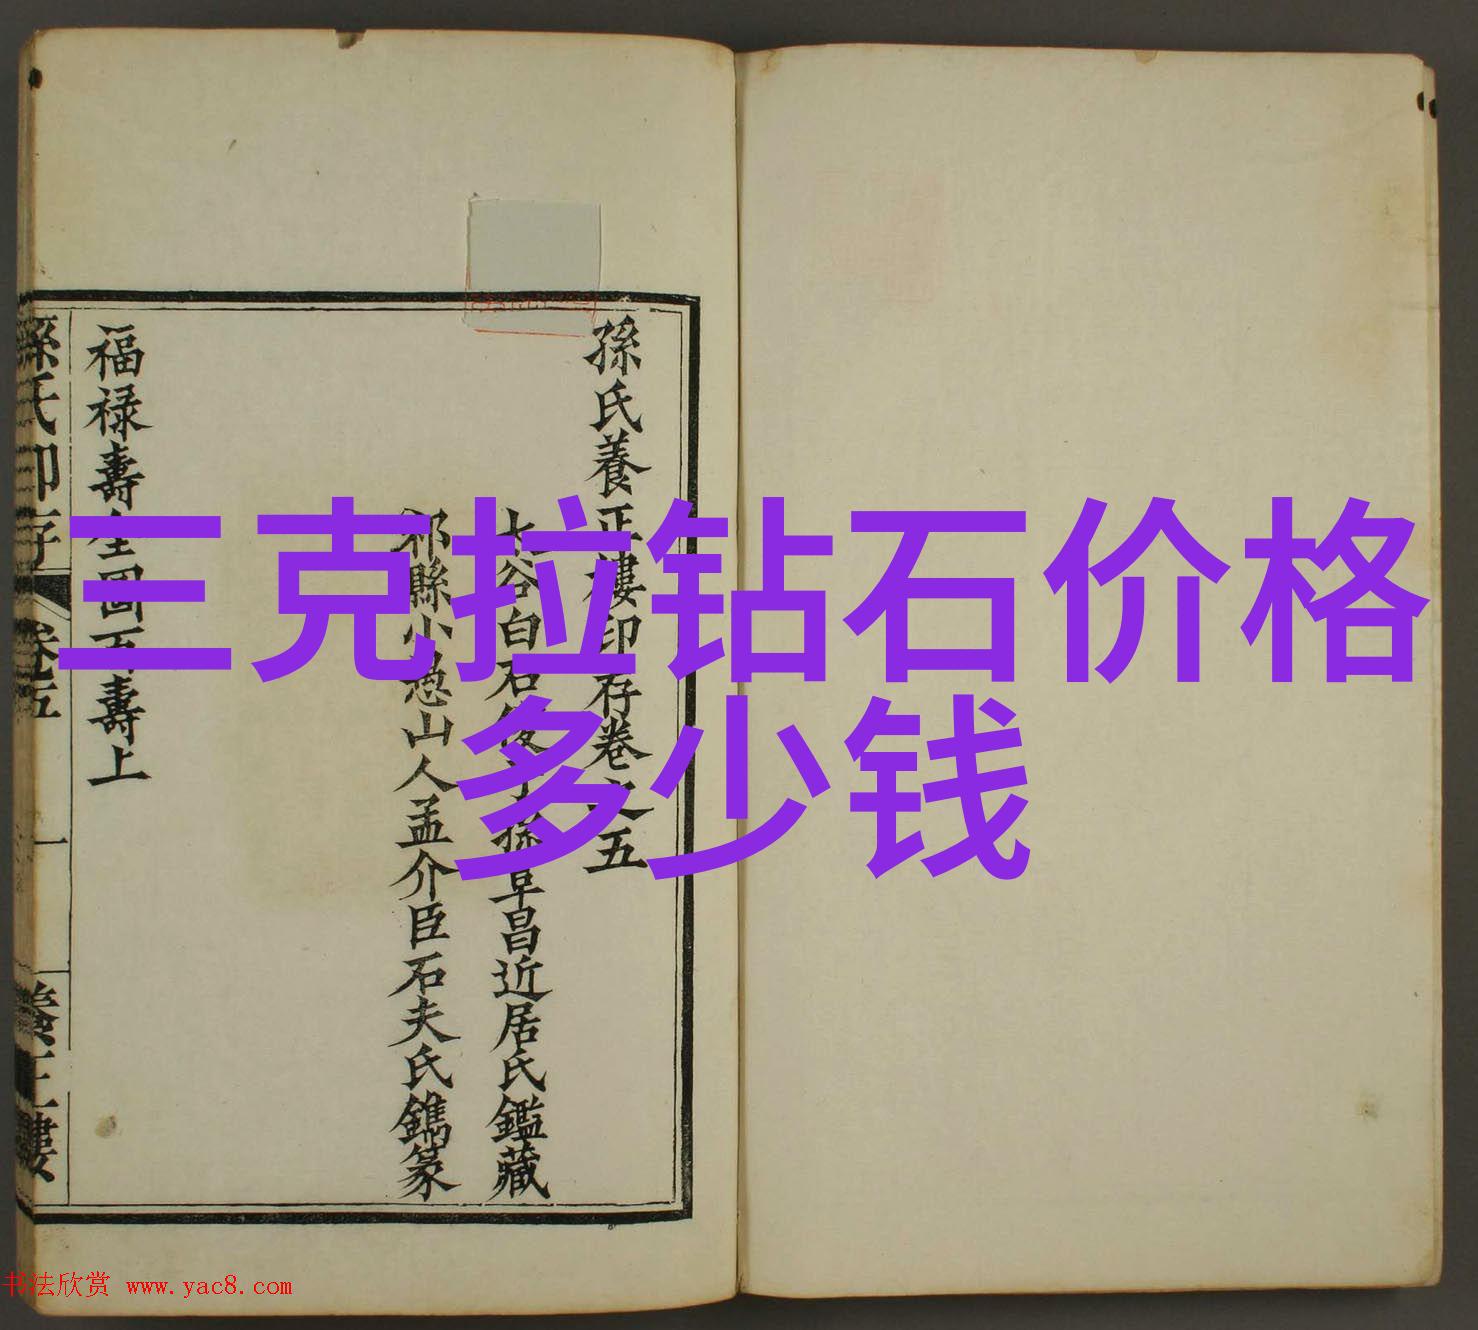 三克拉钻石价格
多少钱
孫氏養正樓印存卷之五
太谷白石後亍孫阜昌近居氏鑑藏
祁縣小憨山人孟介臣石夫氏鐫篆
福禄壽全圖百壽上
孫氏印存 卷五
一
養正樓
书法欣赏 www.yac8.com